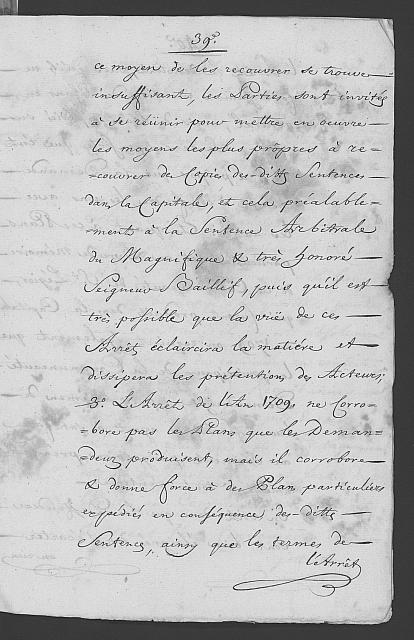 39.º
ce moyen de les recouvrer se trouve
insuffisant, les Parties sont invitées
à se réünir pour mettre en oeuvre
les moyens les plus propres à re-
-couvrer des Copies des-ditts Sentences
dans la Capitale, et cela préalable-
-ment à la Sentence Arbitrale
du Magnifique & très honoré
Seigneur Baillif, puis qu'il est
très possible que la vüe de ces
Arrêts éclaircira la matiére et
dissipera les prétentions des Acteurs;
3.º L'Arrêt de l'An 1709. ne Corro-
bore pas les Plans que les Deman-
-deurs produisent, mais il corrobore
& donne force à des Plans particuliers
expédiés en conséquence des-ditts
Sentences, ainsy que les termes de
l'Arrêt